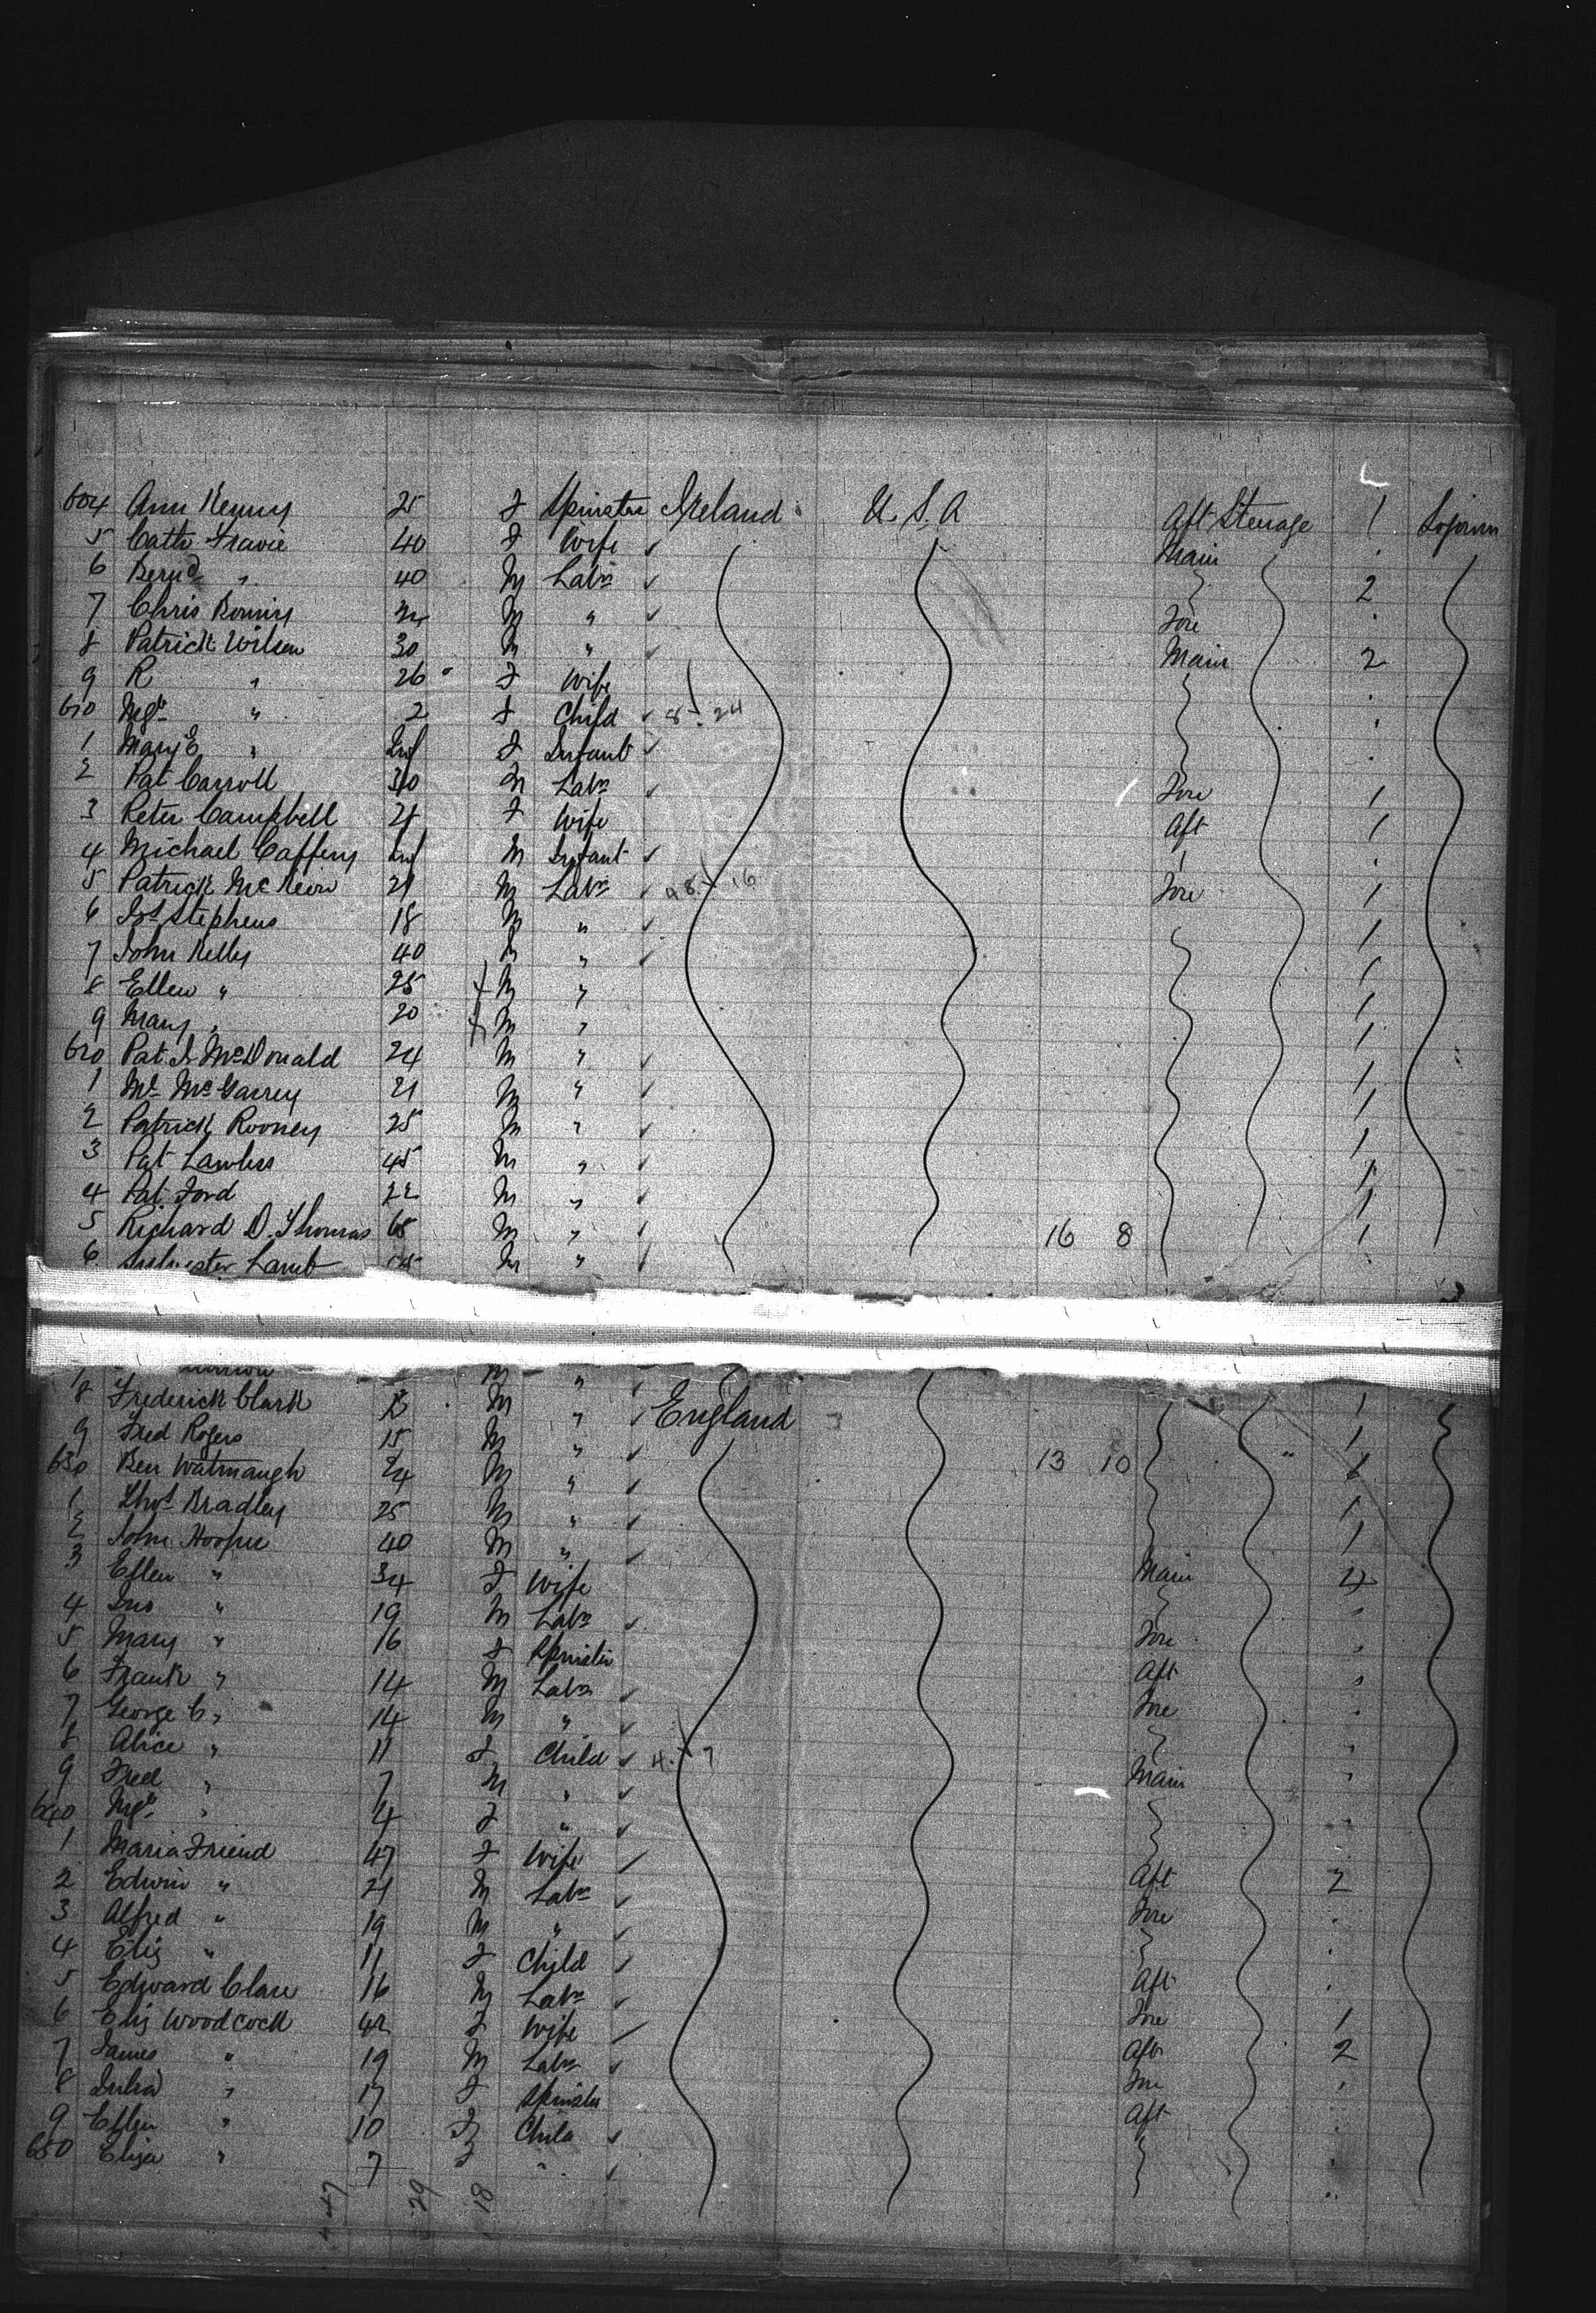 604 Ann Kenny 25 F Spinster Ireland U.S.A Aft Steerage 1 Sojourn
5 Cath Travie 40 F Wife Main
6 Bernd " 40 M Labr 2
7 Chris M " Fore
8 Patrick Wilson 30 M " Main 2
9 R " 26 F Wife
610 Mgt " 2 F Child 8 - 24
1 Mary E " Inf F Infant
2 Pat Carroll 30 M Labr Fore 1
3 Peter Campbell 24 F Wife Aft 1
4 Michael Caffery Inf M Infant
5 Patrick 21 M Labr 16 Fore 1
6 Stephens 18 M " 1
7 John Kelly 40 M " 1
8 Ellen " 25 M " 1
9 Mary " 20 M " 1
620 Pat. J. McDonald 24 M " 1
1 Ml McGarrey 21 M " 1
2 Patrick Rooney 25 M " 1
3 Pat Lawless 45 M " 1
4 Pat Ford 22 M " 1
5 Richard D. Thomas 68 M " 16 8 1
6 Sylvester Lamb M "
M "
8 Frederick Clark M " England 1
9 Fred Rogers 15 M " 1
630 Ben Watmaugh 24 M " 13 10 1
1 Thos Bradley 25 M " 1
2 John Hooper 40 M " 1
3 Ellen " 34 F Wife Main 4
4 Jno " 19 M Labr
5 Mary " 16 F Spinster Fore
6 Frank " 14 M Labr Aft
7 George C " 14 M " Fore
8 Alice " 11 F Child 4 - 7
9 Fred " 7 M " Main
640 Mgt " 4 F "
1 Maria Friend 47 F Wife
2 Edwin " 21 M Labr Aft 2
3 Alfred " 19 M " Fore
4 Eliz " 11 F Child
5 Edward Clare 16 M Labr Aft
6 Eliz Woodcock 42 F Wife Fore 1
7 James " 19 M Labr Aft 2
8 Julia " 17 F Spinster Fore
9 Ellen " 10 F Child Aft
650 Eliza " 7 F "
47 29 18